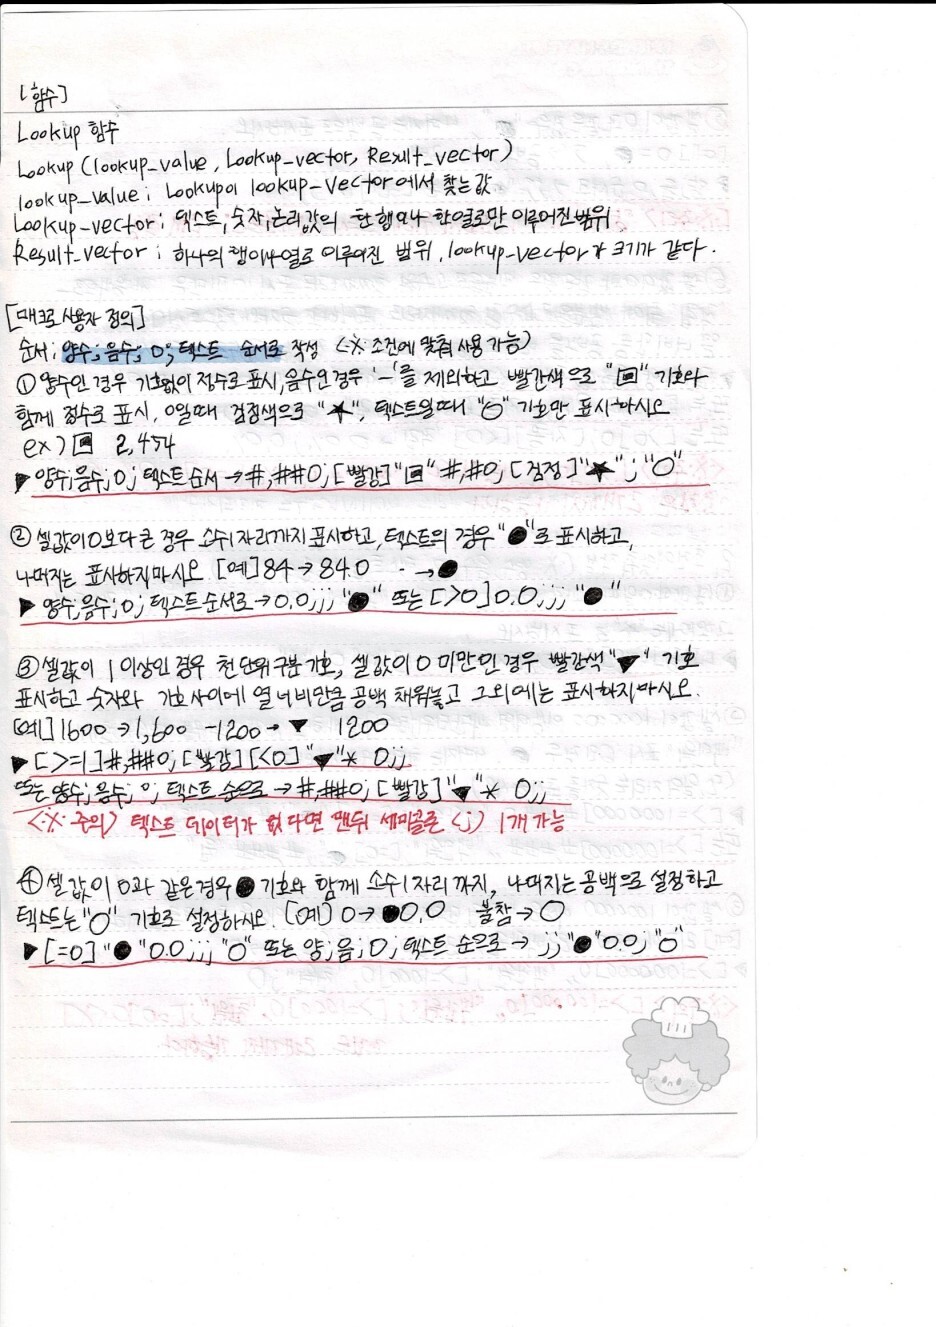 [함수]
Lookup 함수
Lookup (lookup_value, Lookup_vector, Result_vector)
lookup_value ; Lookup이 lookup_vector에서 찾는 값
Lookup_vector ; 텍스트, 숫자, 논리값의 한 행이나 한 열로만 이루어진 범위
Result_vector ; 하나의 행이나 열로 이루어진 범위, lookup_vector와 크기가 같다.
[매크로 사용자 정의]
순서 ; 양수; 음수; 0; 텍스트 순서로 작성 <※ 조건에 맞춰 사용 가능>
① 양수인 경우 기호없이 정수로 표시, 음수인 경우 '-'를 제외하고 빨간색으로 "▣" 기호와
함께 정수로 표시, 0일때 검정색으로 "★", 텍스트일때 "○" 기호만 표시하시오
ex) ▣ 2,454
▶ 양수; 음수; 0; 텍스트 순서 → #,##0; [빨강]"▣" #,#0; [검정]"★"; "○"
② 셀값이 0보다 큰 경우 소수1자리까지 표시하고, 텍스트의 경우 "●"로 표시하고,
나머지는 표시하지마시오 [예] 84 → 84.0 · → ●
▶ 양수; 음수; 0; 텍스트 순서로 → 0.0;;; "●" 또는 [>0] 0.0;;; "●"
③ 셀값이 1 이상인 경우 천 단위 구분 기호, 셀 값이 0 미만인 경우 빨간색 "▼" 기호
표시하고 숫자와 기호 사이에 열 너비만큼 공백 채워놓고 그 외에는 표시하지마시오.
[예] 1600 → 1,600 -1200 → ▼ 1200
▶ [>=1]#,##0; [빨강][<0] "▼"* 0;;
또는 양수; 음수; 0; 텍스트 순으로 → #,##0; [빨강]"▼"* 0;;
<※ 주의> 텍스트 데이터가 없다면 맨뒤 세미콜론 <;> 1개 가능
④ 셀 값이 0과 같은 경우 ● 기호와 함께 소수1자리 까지, 나머지는 공백으로 설정하고
텍스트는 "○" 기호로 설정하시오. [예] 0 → ●0.0 불참 → ○
▶ [=0] "●"0.0;;; "○" 또는 양; 음; 0; 텍스트 순으로 → ;; "●"0.0; "○"